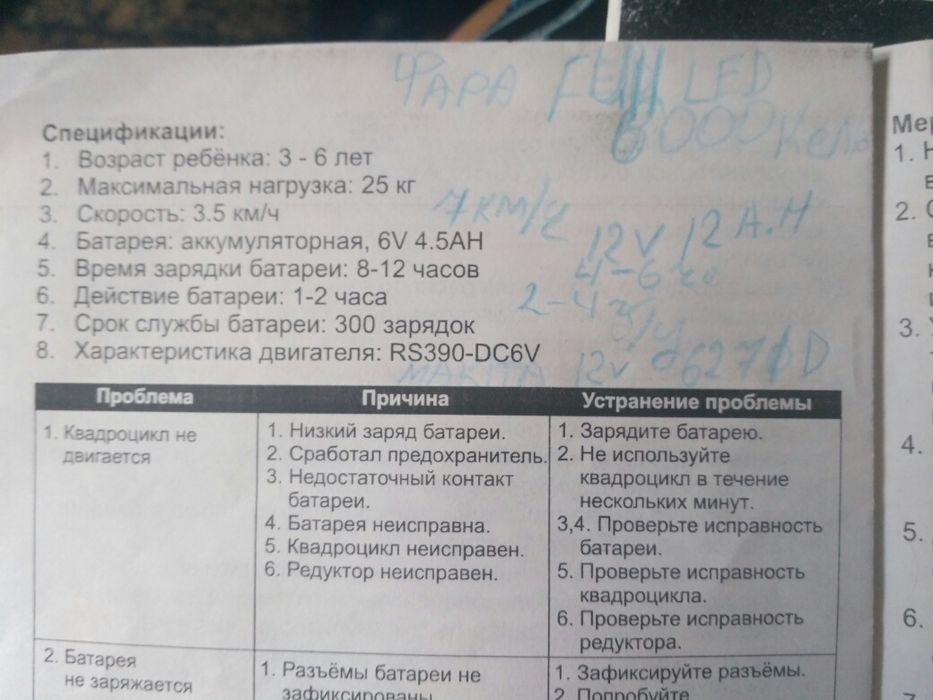 ФАРА FULL LED
6000 Кель
Спецификации:
1. Возраст ребёнка: 3 - 6 лет
2. Максимальная нагрузка: 25 кг
3. Скорость: 3.5 км/ч 7 км/ч
4. Батарея: аккумуляторная, 6V 4.5AH 12V 12 A.H
5. Время зарядки батареи: 8-12 часов 4-6
6. Действие батареи: 1-2 часа 2-4
7. Срок службы батареи: 300 зарядок
8. Характеристика двигателя: RS390-DC6V
MAKITA 12v 6271D
Проблема Причина Устранение проблемы
1. Квадроцикл не двигается
1. Низкий заряд батареи.
2. Сработал предохранитель.
3. Недостаточный контакт
батареи.
4. Батарея неисправна.
5. Квадроцикл неисправен.
6. Редуктор неисправен.
1. Зарядите батарею.
2. Не используйте
квадроцикл в течение
нескольких минут.
3,4. Проверьте исправность
батареи.
5. Проверьте исправность
квадроцикла.
6. Проверьте исправность
редуктора.
2. Батарея
не заряжается
1. Разъёмы батареи не
зафиксированы
1. Зафиксируйте разъёмы.
2. Попробуйте
Мер
1. Н
2. С
3. У
4.
5.
6.